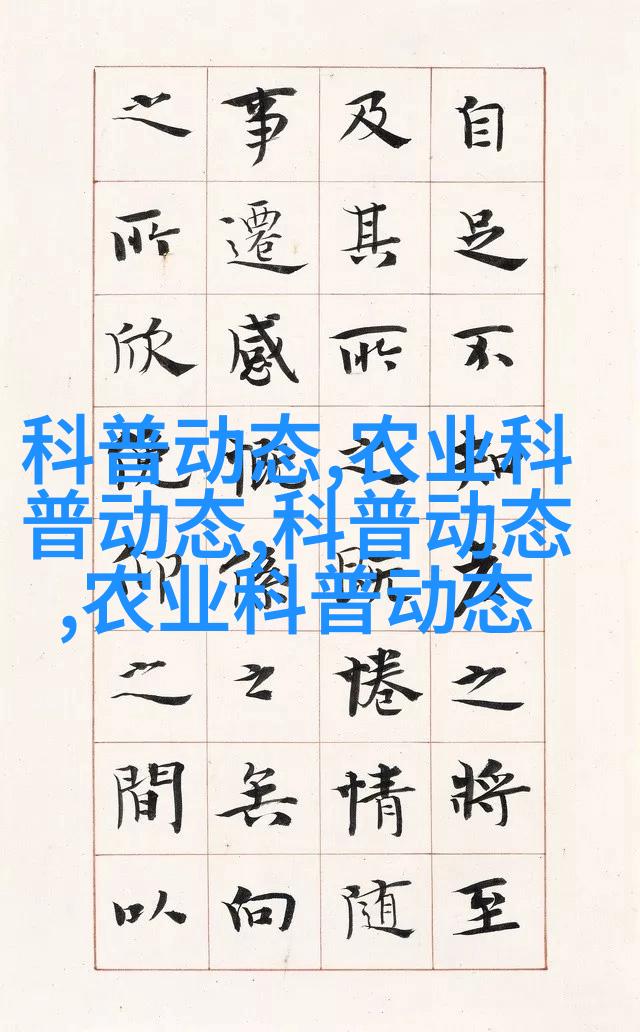 自足不知老之將至
及其所之既惓情隨
事遷感慨係之矣向
之所欣仰之間以
科普动态,农业科
普动态,科普动态
,农业科普动态